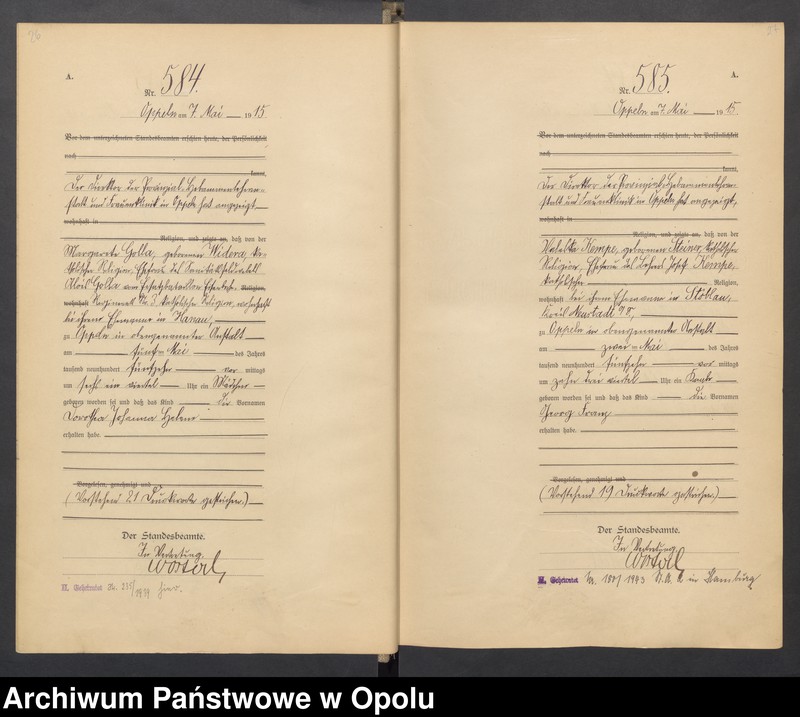 26
A.
Nr. 584.
Oppeln am 7. Mai 1915
Vor dem unterzeichneten Standesbeamten erschien heute, der Persönlichkeit
nach
kannt,
Der Direktor der Provinzial-Hebammenlehran-
stalt und Frauenklinik in Oppeln hat angezeigt,
wohnhaft in
Religion, und zeigte an, daß von der
Margarete Golla, geborenen Widera, ka-
tholischer Religion, Ehefrau des
Alois Golla vom Ersatzbataillon Eisenbahn- Religion,
wohnhaft Regiment No. 3 katholischer Religion, wohnhaft
bei ihrem Ehemanne in Hanau,
zu Oppeln in obengenannter Anstalt
am fünften Mai des Jahres
tausend neunhundert fünfzehn vor mittags
um sechs ein viertel Uhr ein Mädchen
geboren worden sei und daß das Kind die Vornamen
Dorothea Johanna Helene
erhalten habe.
Vorgelesen, genehmigt und
(Vorstehend 21 Druckworte gestrichen.)
Der Standesbeamte.
In Vertretung.
II. Geheiratet Nr. 235/1939 hier.
A.
Nr. 585.
Oppeln am 7. Mai 1915
Vor dem unterzeichneten Standesbeamten erschien heute, der Persönlichkeit
nach
kannt,
Der Direktor der Provinzial-Hebammenlehran-
stalt und Frauenklinik in Oppeln hat angezeigt,
wohnhaft in
Religion, und zeigte an, daß von der
Valeska Kempe, geborenen Steiner, katholischer
Religion, Ehefrau des Lehrers Josef Kempe,
katholischer Religion,
wohnhaft bei ihrem Ehemanne in Stöblau,
Kreis Neustadt O/S,
zu Oppeln in obengenannter Anstalt
am zweiten Mai des Jahres
tausend neunhundert fünfzehn vor mittags
um zehn drei viertel Uhr ein Knabe
geboren worden sei und daß das Kind die Vornamen
Georg Franz
erhalten habe.
Vorgelesen, genehmigt und
(Vorstehend 19 Druckworte gestrichen.)
Der Standesbeamte.
In Vertretung.
II. Geheiratet Nr. 180/1943 in Hamburg
Archiwum Państwowe w Opolu